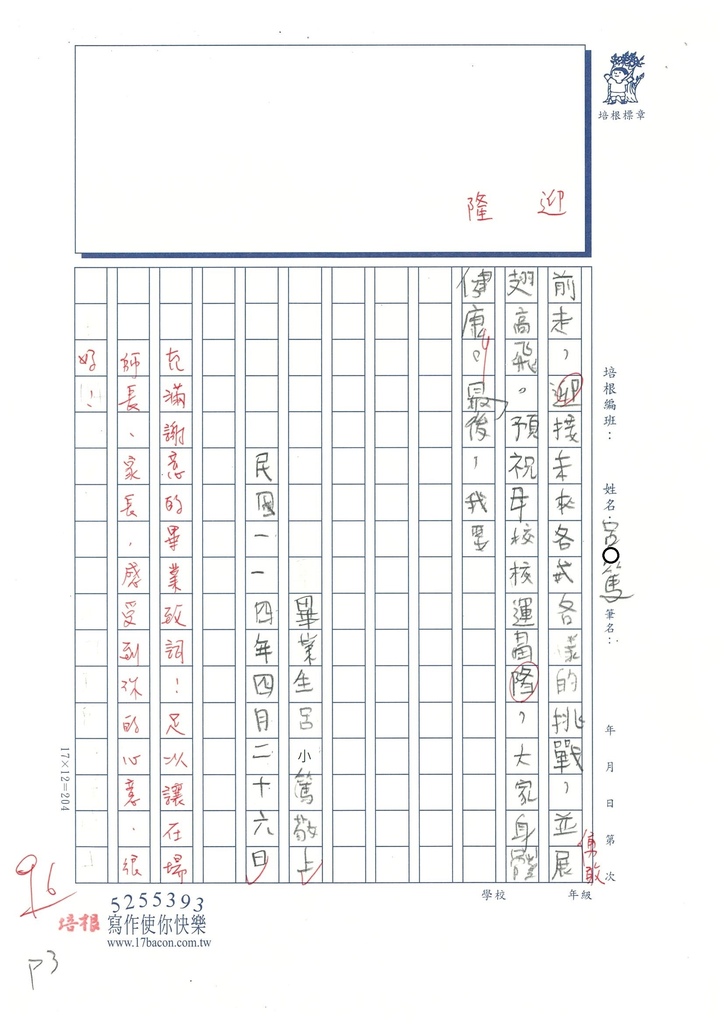 迎
隆
培根標章
培根編班：
姓名：呂○篤
筆名：
年 月 日 第 次
學校 年級
前走，迎接未來各式各樣的挑戰，並展
勇敢
翅高飛。預祝母校校運昌隆，大家身體
健康。最後，我要
畢業生呂小篤敬上
民國一一四年四月二十六日
充滿謝意的畢業致詞！足以讓在場
師長、家長，感受到你的心意，很
好！
17×12=204
96
5255393
培根 寫作使你快樂
www.17bacon.com.tw
P3